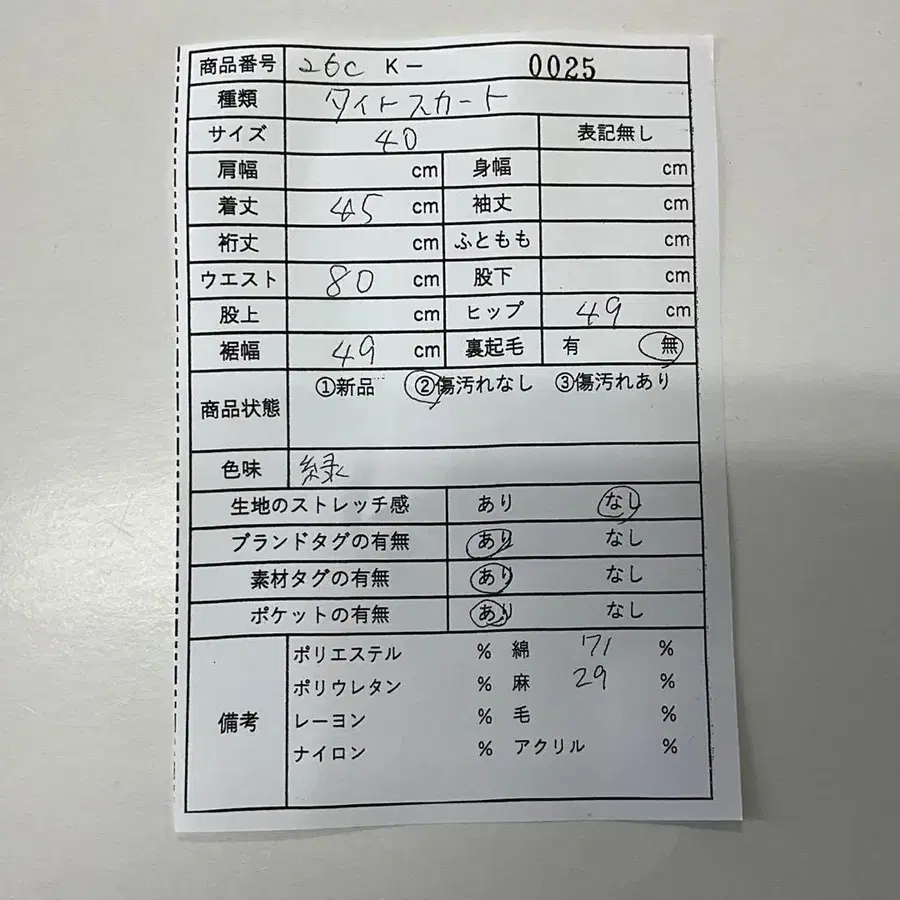 商品番号 26C K- 0025
種類 タイトスカート
サイズ 40 表記無し
肩幅 cm 身幅 cm
着丈 45 cm 袖丈 cm
裄丈 cm ふともも cm
ウエスト 80 cm 股下 cm
股上 cm ヒップ 49 cm
裾幅 49 cm 裏起毛 有 無
商品状態 ①新品 ②傷汚れなし ③傷汚れあり
色味 緑
生地のストレッチ感 あり なし
ブランドタグの有無 あり なし
素材タグの有無 あり なし
ポケットの有無 あり なし
備考
ポリエステル % 綿 71 %
ポリウレタン % 麻 29 %
レーヨン % 毛 %
ナイロン % アクリル %